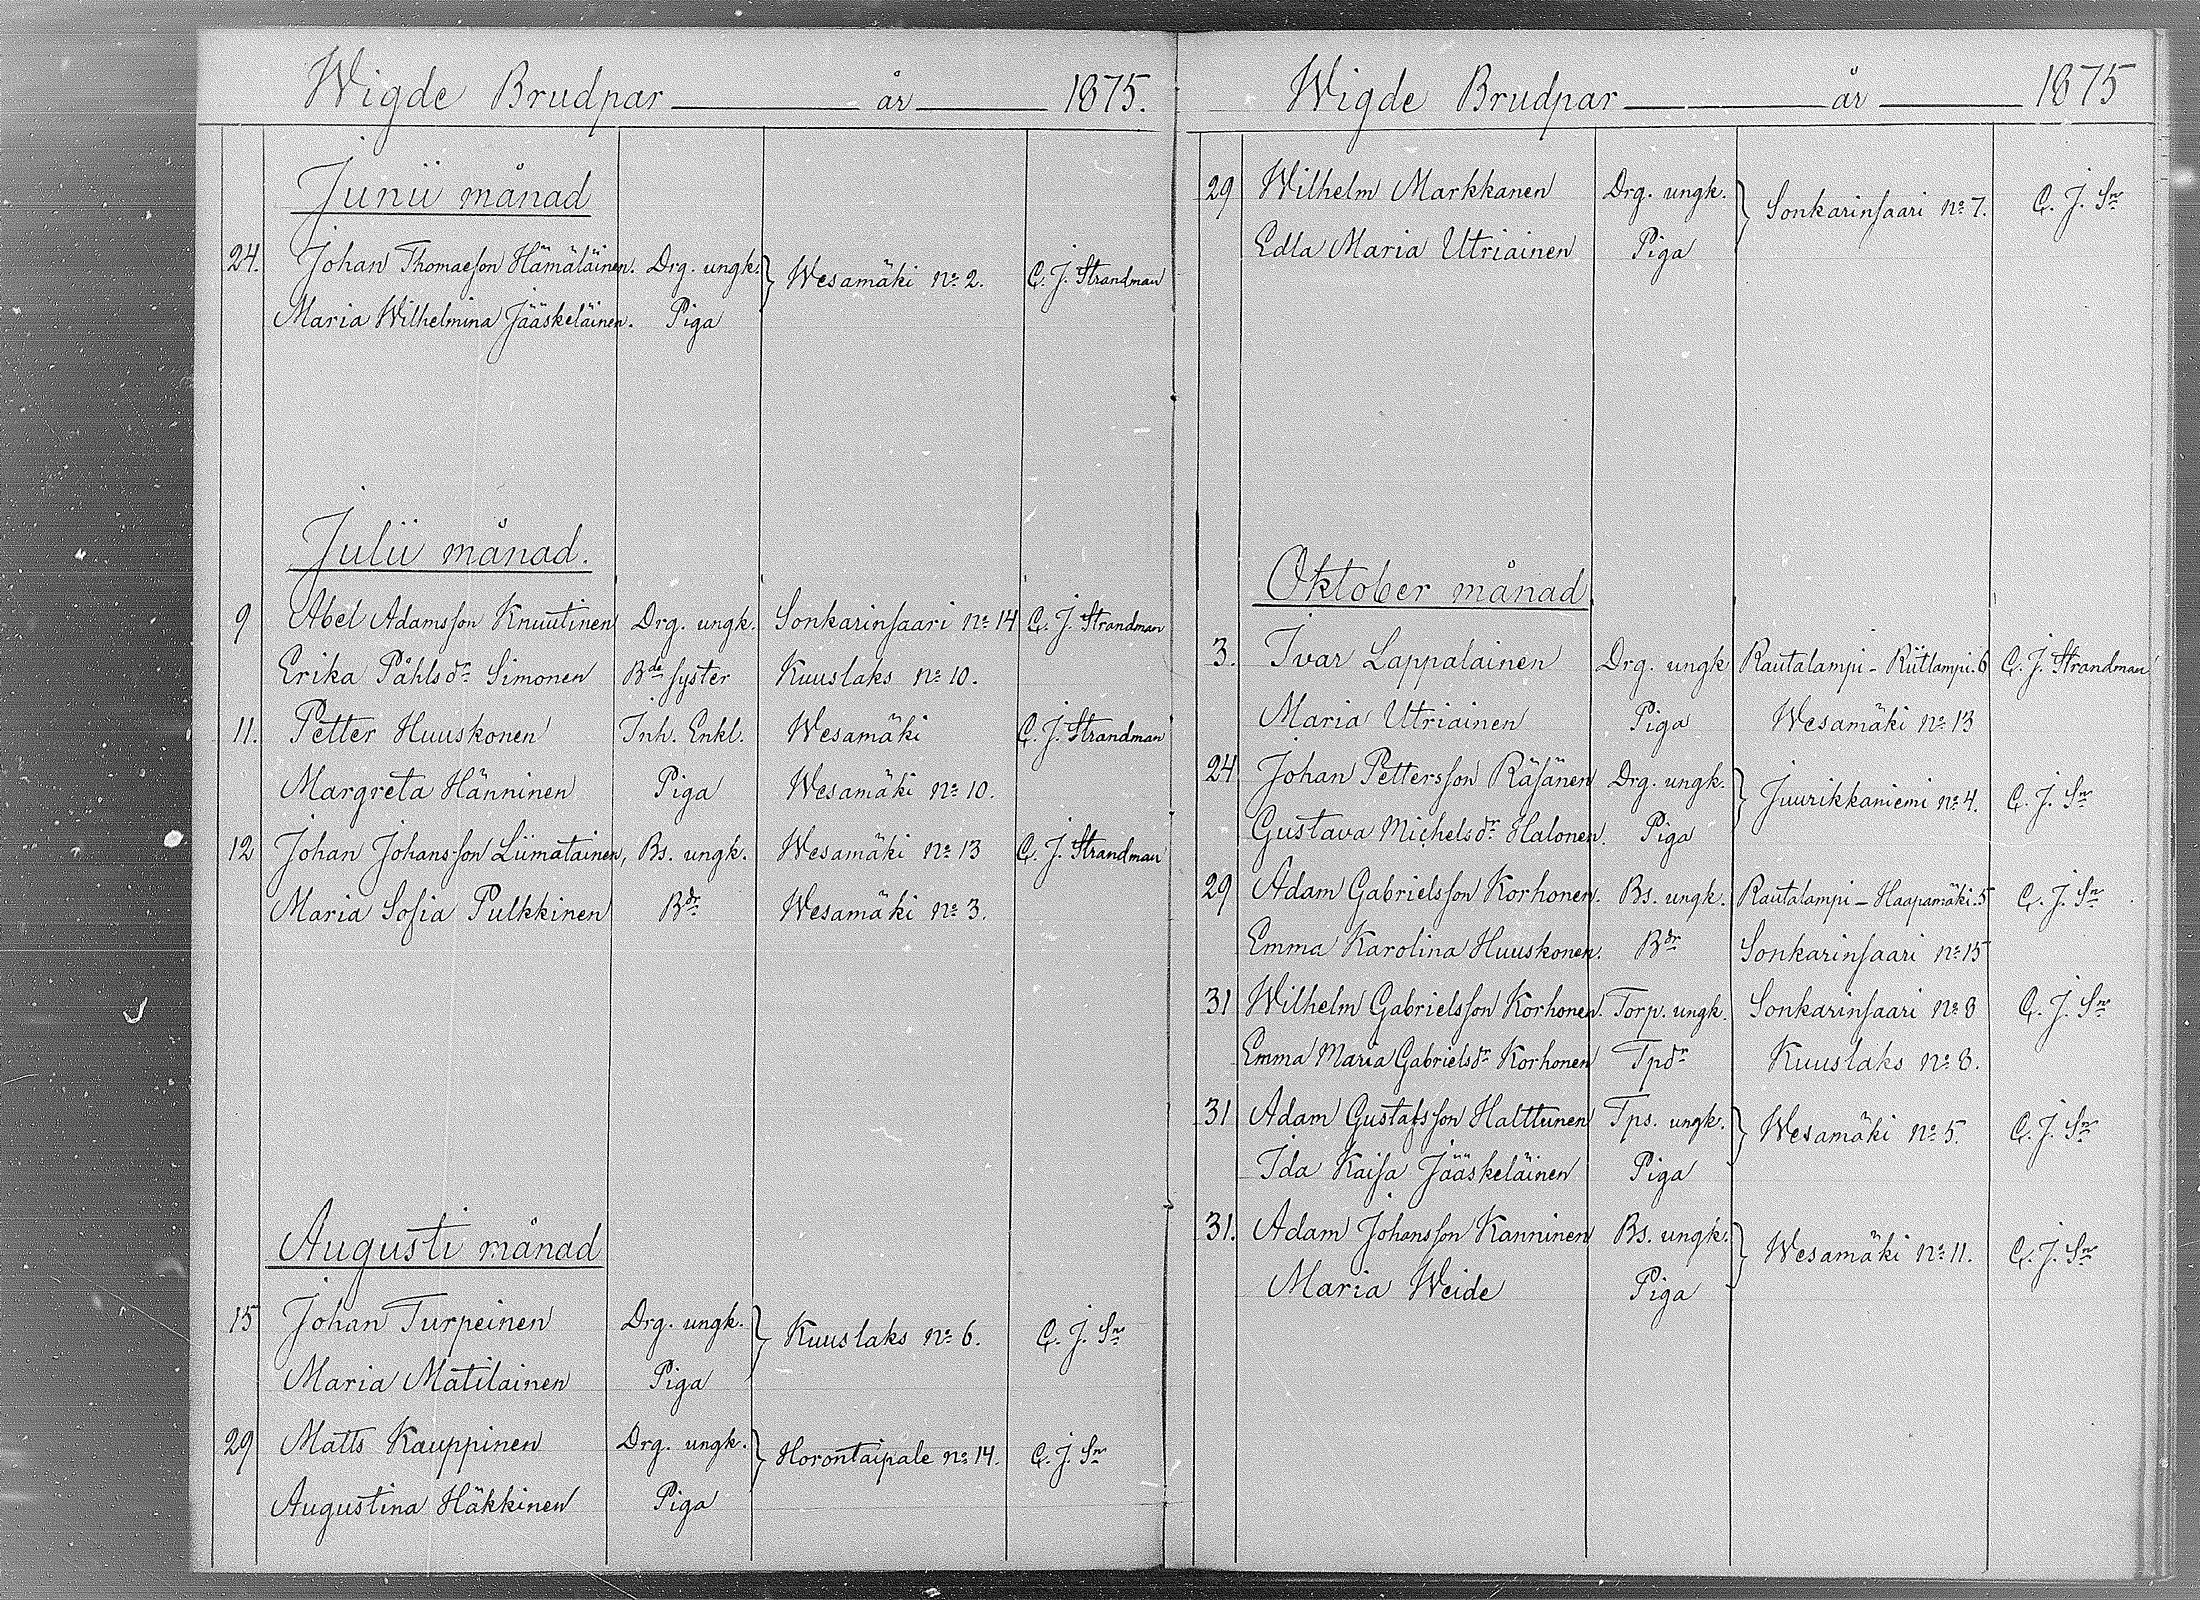 Wigde Brudpar år 1875.
Junii månad
24. Johan Thomasson Hämäläinen. Drg. ungk. Wesamäki No 2. C. J. Strandman
Maria Wilhelmina Jääskeläinen. Piga
Julii månad.
9 Abel Adamsson Knuutinen Drg. ungk. Sonkarinsaari No 14 C. J. Strandman
Erika Påhlsdr Simonen Bde syster Kuuslaks No 10.
11. Petter Huuskonen Inh. Enkl. Wesamäki C. J. Strandman
Margreta Hänninen Piga Wesamäki No 10.
12 Johan Johansson Liimatainen, Bs. ungk. Wesamäki No 13 C. J. Strandman
Maria Sofia Pulkkinen Bdr Wesamäki No 3.
Augusti månad
15 Johan Turpeinen Drg. ungk. Kuuslaks No 6. C. J. Sn
Maria Matilainen Piga
29 Matts Kauppinen Drg. ungk. Horontaipale No 14. C. J. Sn
Augustina Häkkinen Piga
Wigde Brudpar år 1875
29 Wilhelm Markkanen Drg. ungk. Sonkarinsaari No 7. C. J. Sn
Edla Maria Utriainen Piga
Oktober månad
3. Ivar Lappalainen Drg. ungk Rautalampi - Riitlampi. 6 C. J. Strandman
Maria Utriainen Piga Wesamäki No 13
24 Johan Pettersson Räsänen Drg. ungk. Juurikkaniemi No 4. C. J. Sn
Gustava Michelsdr Halonen. Piga
29 Adam Gabrielsson Korhonen. Bs. ungk. Rautalampi - Haapamäki. 5 C. J. Sn
Emma Karolina Huuskonen. Bdr Sonkarinsaari No 15
31 Wilhelm Gabrielsson Korhonen. Torp. ungk. Sonkarinsaari No 8 C. J. Sn
Emma Maria Gabrielsdr Korhonen Tpdr Kuuslaks No 8.
31 Adam Gustafsson Halttunen Tps. ungk. Wesamäki No 5. C. J. Sn
Ida Kaisa Jääskeläinen Piga
31. Adam Johansson Kanninen Bs. ungk. Wesamäki No 11. C. J. Sn
Maria Weide Piga